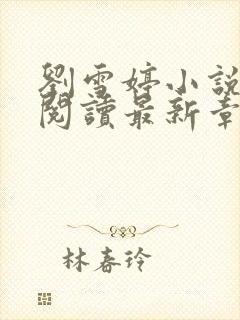 劉雪婷小說
閱讀最新章
林春玲